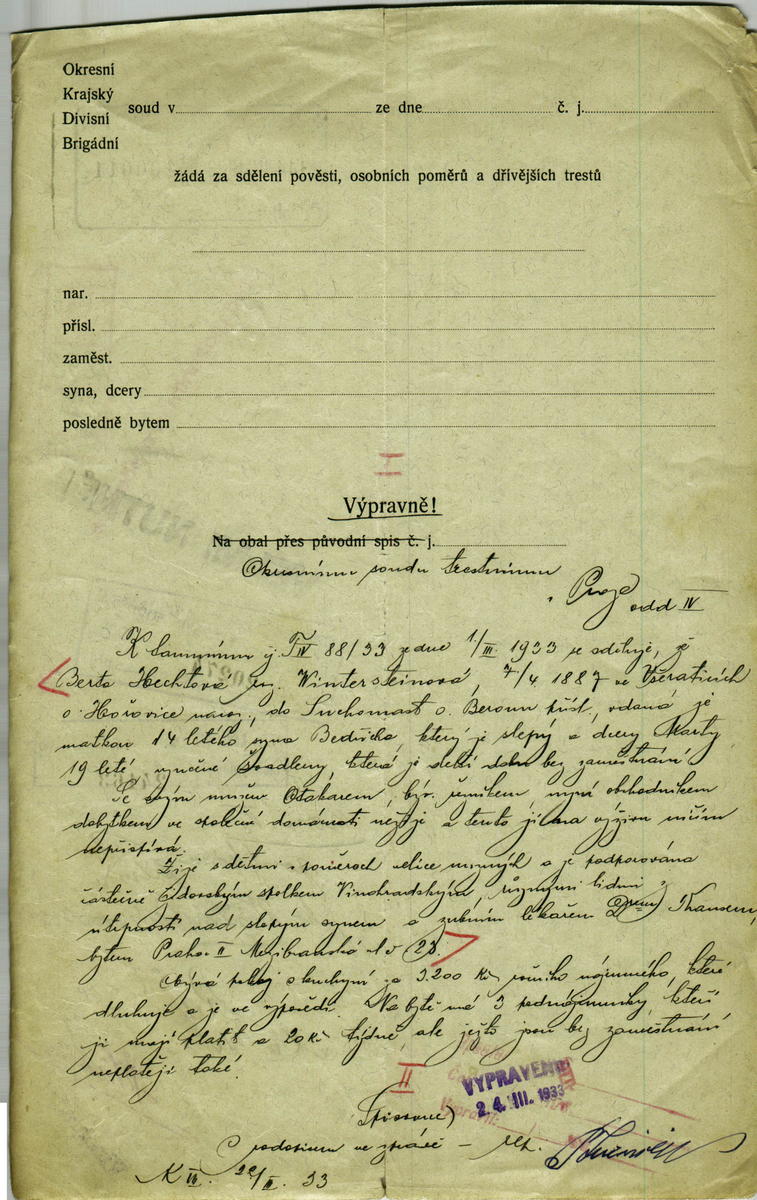 Okresní
Krajský
Divisní
Brigádní
soud v ze dne č. j.
žádá za sdělení pověsti, osobních poměrů a dřívějších trestů
nar.
přísl.
zaměst.
syna, dcery
posledně bytem
I
Výpravně!
Na obal přes původní spis č. j.
Okresnímu soudu trestnímu
v Praze
odd IV
K tamnímu čj. T IV 88/33 ze dne 1/III. 1933 se sděluje, že
Berta Hechtová roz. Wintersteinová, 7/4 1887 ve Všeradicích
o. Hořovice naroz., do Suchomast o. Beroun přísl., vdaná, je
matkou 14 letého syna Bedřicha, který je slepý a dcery Marty
19 leté vyučené švadleny, která je delší dobu bez zaměstnání
Se svým mužem Otakarem, býv. řezníkem, nyní obchodníkem
dobytkem ve společné domácnosti nežije a tento jí na výživu ničím
nepřispívá.
Žije s dětmi v poměrech velice nuzných a je podporována
částečně židovským spolkem Vinohradským, různými lidmi z
útrpnosti nad slepým synem a zubním lékařem
bytem Praha II Mezibranská
Obývá pokoj s kuchyní za 3.200 Kč ročního nájemného, které
dluhuje a je ve výpovědi. Na bytě má 3 podnájemníky, kteří
jí mají platit a 20 Kč týdně, ale ježto jsou bez zaměstnání
neplatějí také.
II
VYPRAVENO
24. III. 1933
Spisovně)
K III. 22/III. 33